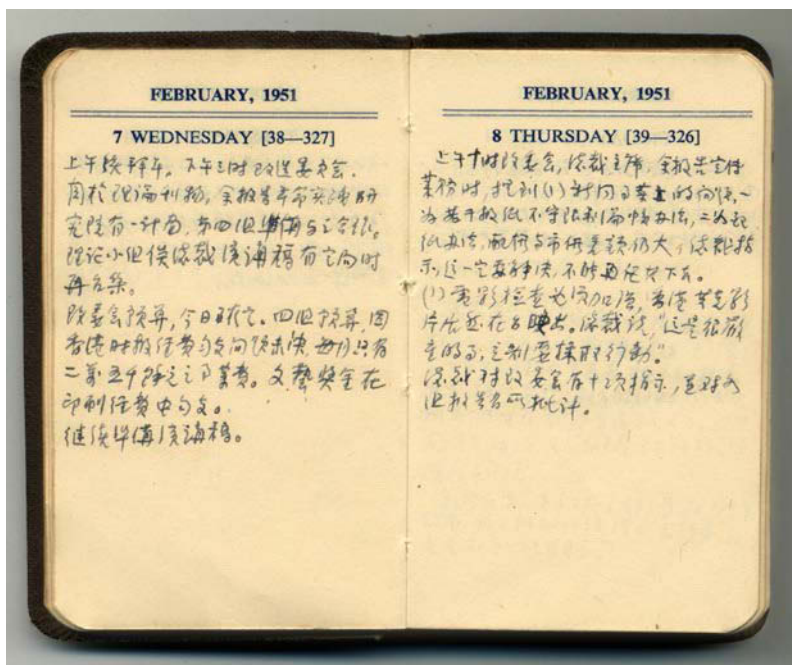 FEBRUARY, 1951
7 WEDNESDAY [38—327]
上午 下午三时改造委员会
关于理论刊物,余报告革命实践研
究院有一计划,第四组准备与之合组。
理论小组俟总裁演讲稿有空闲时
再召集。
改委会预算,今日 四组预算,因
香港时报经费 问题未决,每月只有
二万五千 元之事业费。文艺奖金在
印刷经费中勻支。
继续準備 演讲稿。
FEBRUARY, 1951
8 THURSDAY [39—326]
上午十时改委会,总裁主席,余报告宣传
业务时,提到(1)新闻事业上的问题,一
为若干报纸不守限制篇幅办法,二为配
纸办法,配价与市价差额仍大,总裁指
示,这一定要解决,不能再 下去。
(2)电影检查必须加强,香港 影
片尚在台映出。总裁说,“这是很严
重的事,立刻要採取行动”。
总裁对改委会有十项指示,並对各
组报告有所批评。